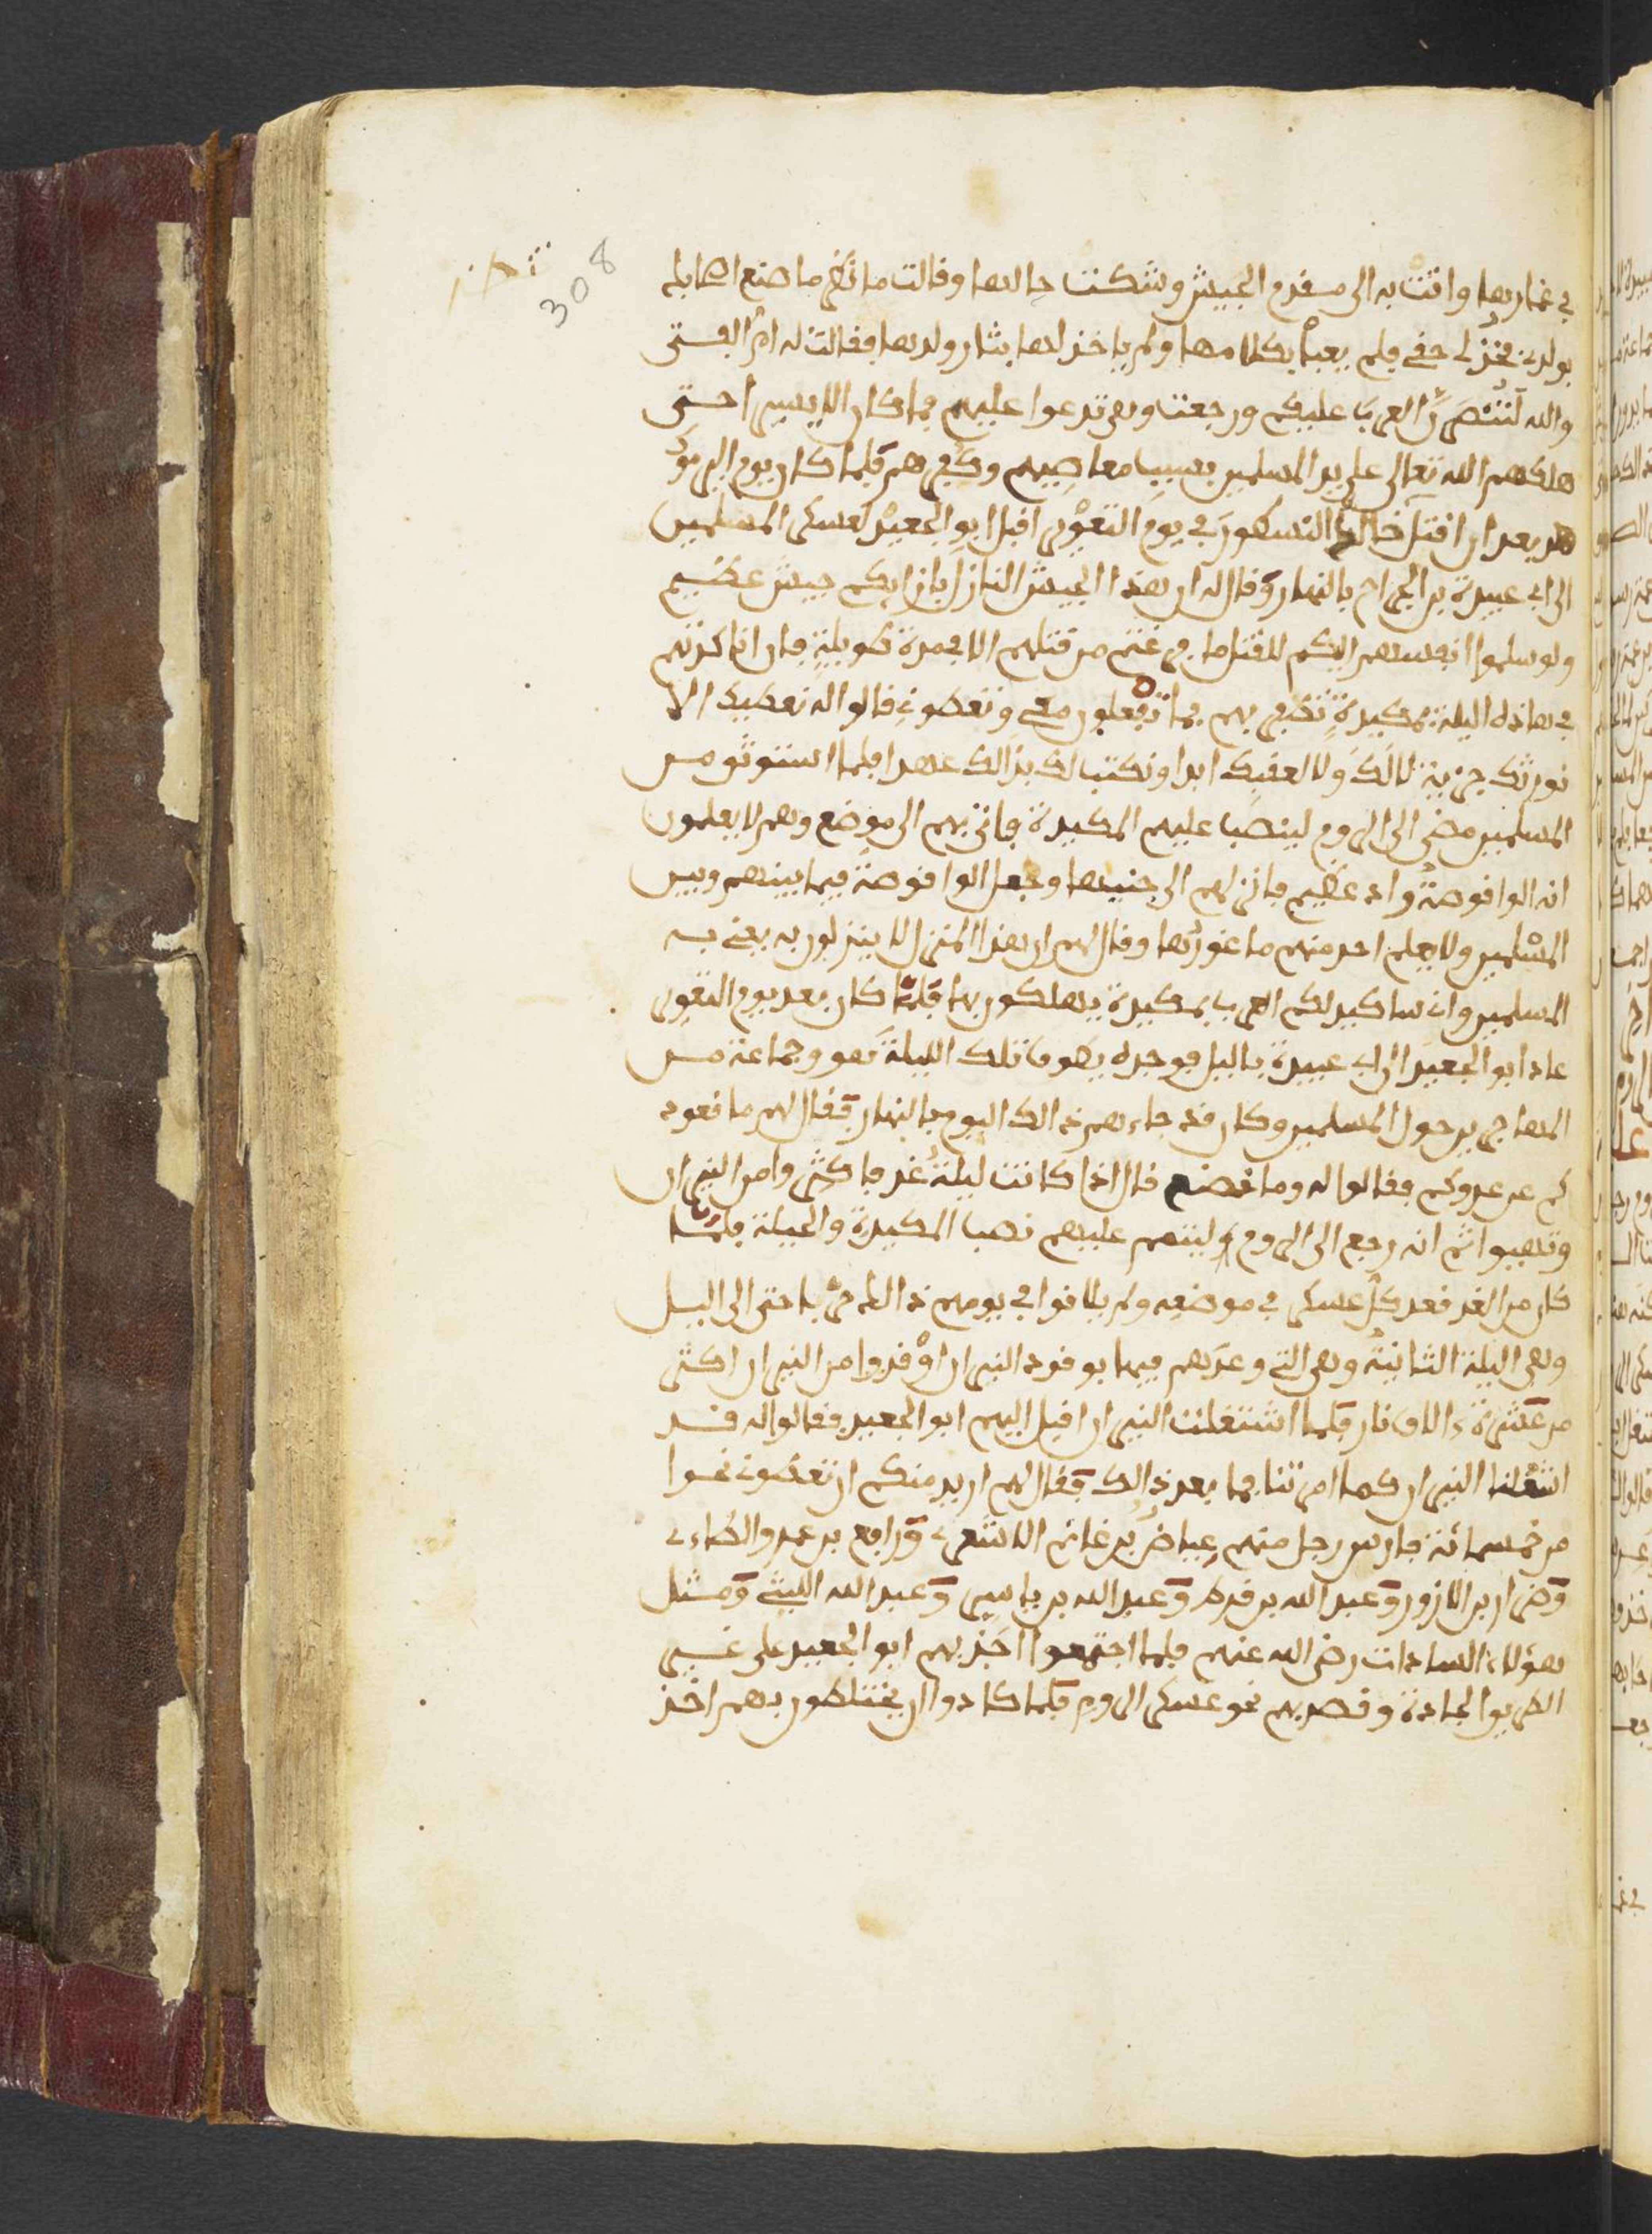 308
في خمارها واتت به الى مقدم الجيش وشكت حالها وقالت ما ترى ما صنع اصحابك
بولدي فخذ لي حقي فلم يعبأ بكلامها ولم ياخذ لها بثار ولدها فقالت له ام الفتى
والله لتنتصرن العرب عليكم ورجعت وهي تدعوا عليهم فما كان الا يسيرا حتى
هلكهم الله تعالى على يد المسلمين بسبب معاصيهم وكفرهم فلما كان يوم اليرموك
بعد ان اقتتل خالد النسطور في يوم التعوير اقبل ابو الجعيد لعسكر المسلمين
الى ابي عبيدة بن الجراح بالنهار وقال له ان هذا الجيش النازل بازايكم جيش عظيم
ولو سلموا انفسهم اليكم للقتل ما فرغتم من قتلهم الا في مدة طويلة فان انا كدتهم
في هاذه الليلة بمكيدة تظفر بهم فما تفعلون معي وتعطوني قالوا له نعطيك الا
نورثك جزية لا لك ولا لعقبك ابدا ونكتب لك بذالك عهدا فلما استوثق من
المسلمين مضى الى الروم لينصب عليهم المكيدة فاتى بهم الى موضع وهم لا يعلمون
انه الواقوصة واد عظيم فانزلهم الى جنبها وجعل الواقوصة فيما بينهم وبين
المسلمين ولا يعلم احد منهم ما غورها وقال لهم ان هذا المنزل لا ينزلون به يعني به
المسلمين وان ساكيد لكم العرب بمكيدة يهلكون بها فلما كان بعد يوم التعوير
عاد ابو الجعيد الى ابي عبيدة بالليل فوجده يطوف تلك الليلة هو وجماعة من
المهاجرين حول المسلمين وكان قد جاءهم ذالك اليوم بالنهار فقال لهم ما قعود
كم عن عدوكم فقالوا له وما نصنع قال اذا كانت ليلة غد فاكثروا من النيران
وتاهبوا ثم انه رجع الى الروم ليتم عليهم نصب المكيدة والحيلة فلما
كان من الغد قعد كل عسكر في موضعه ولم يلاقوا في يومهم ذالك حربا حتى الى الليل
وهي الليلة الثانية وهي التي وعدهم فيها بوقود النيران اوقدوا من النيران اكثر
من عشرة ءالاف نار فلما اشتعلت النيران اقبل اليهم ابو الجعيد فقالوا له قد
اشعلنا النيران كما امرتنا فما بعد ذالك فقال لهم اريد منكم ان تعطوني نحوا
من خمسمائة فارس رجل منهم عياض بن غانم الاشعري ورافع بن عمرو الطاءي
وضرار بن الازور وعبد الله بن قرط وعبد الله بن ياسر وعبد الله الليثي ومثل
هؤلاء السادات رضي الله عنهم فلما اجتمعوا اخذ بهم ابو الجعيد على غير
الطريق الجادة وقصد بهم نحو عسكر الروم فلما كادوا ان يختلطون بهم اخذ